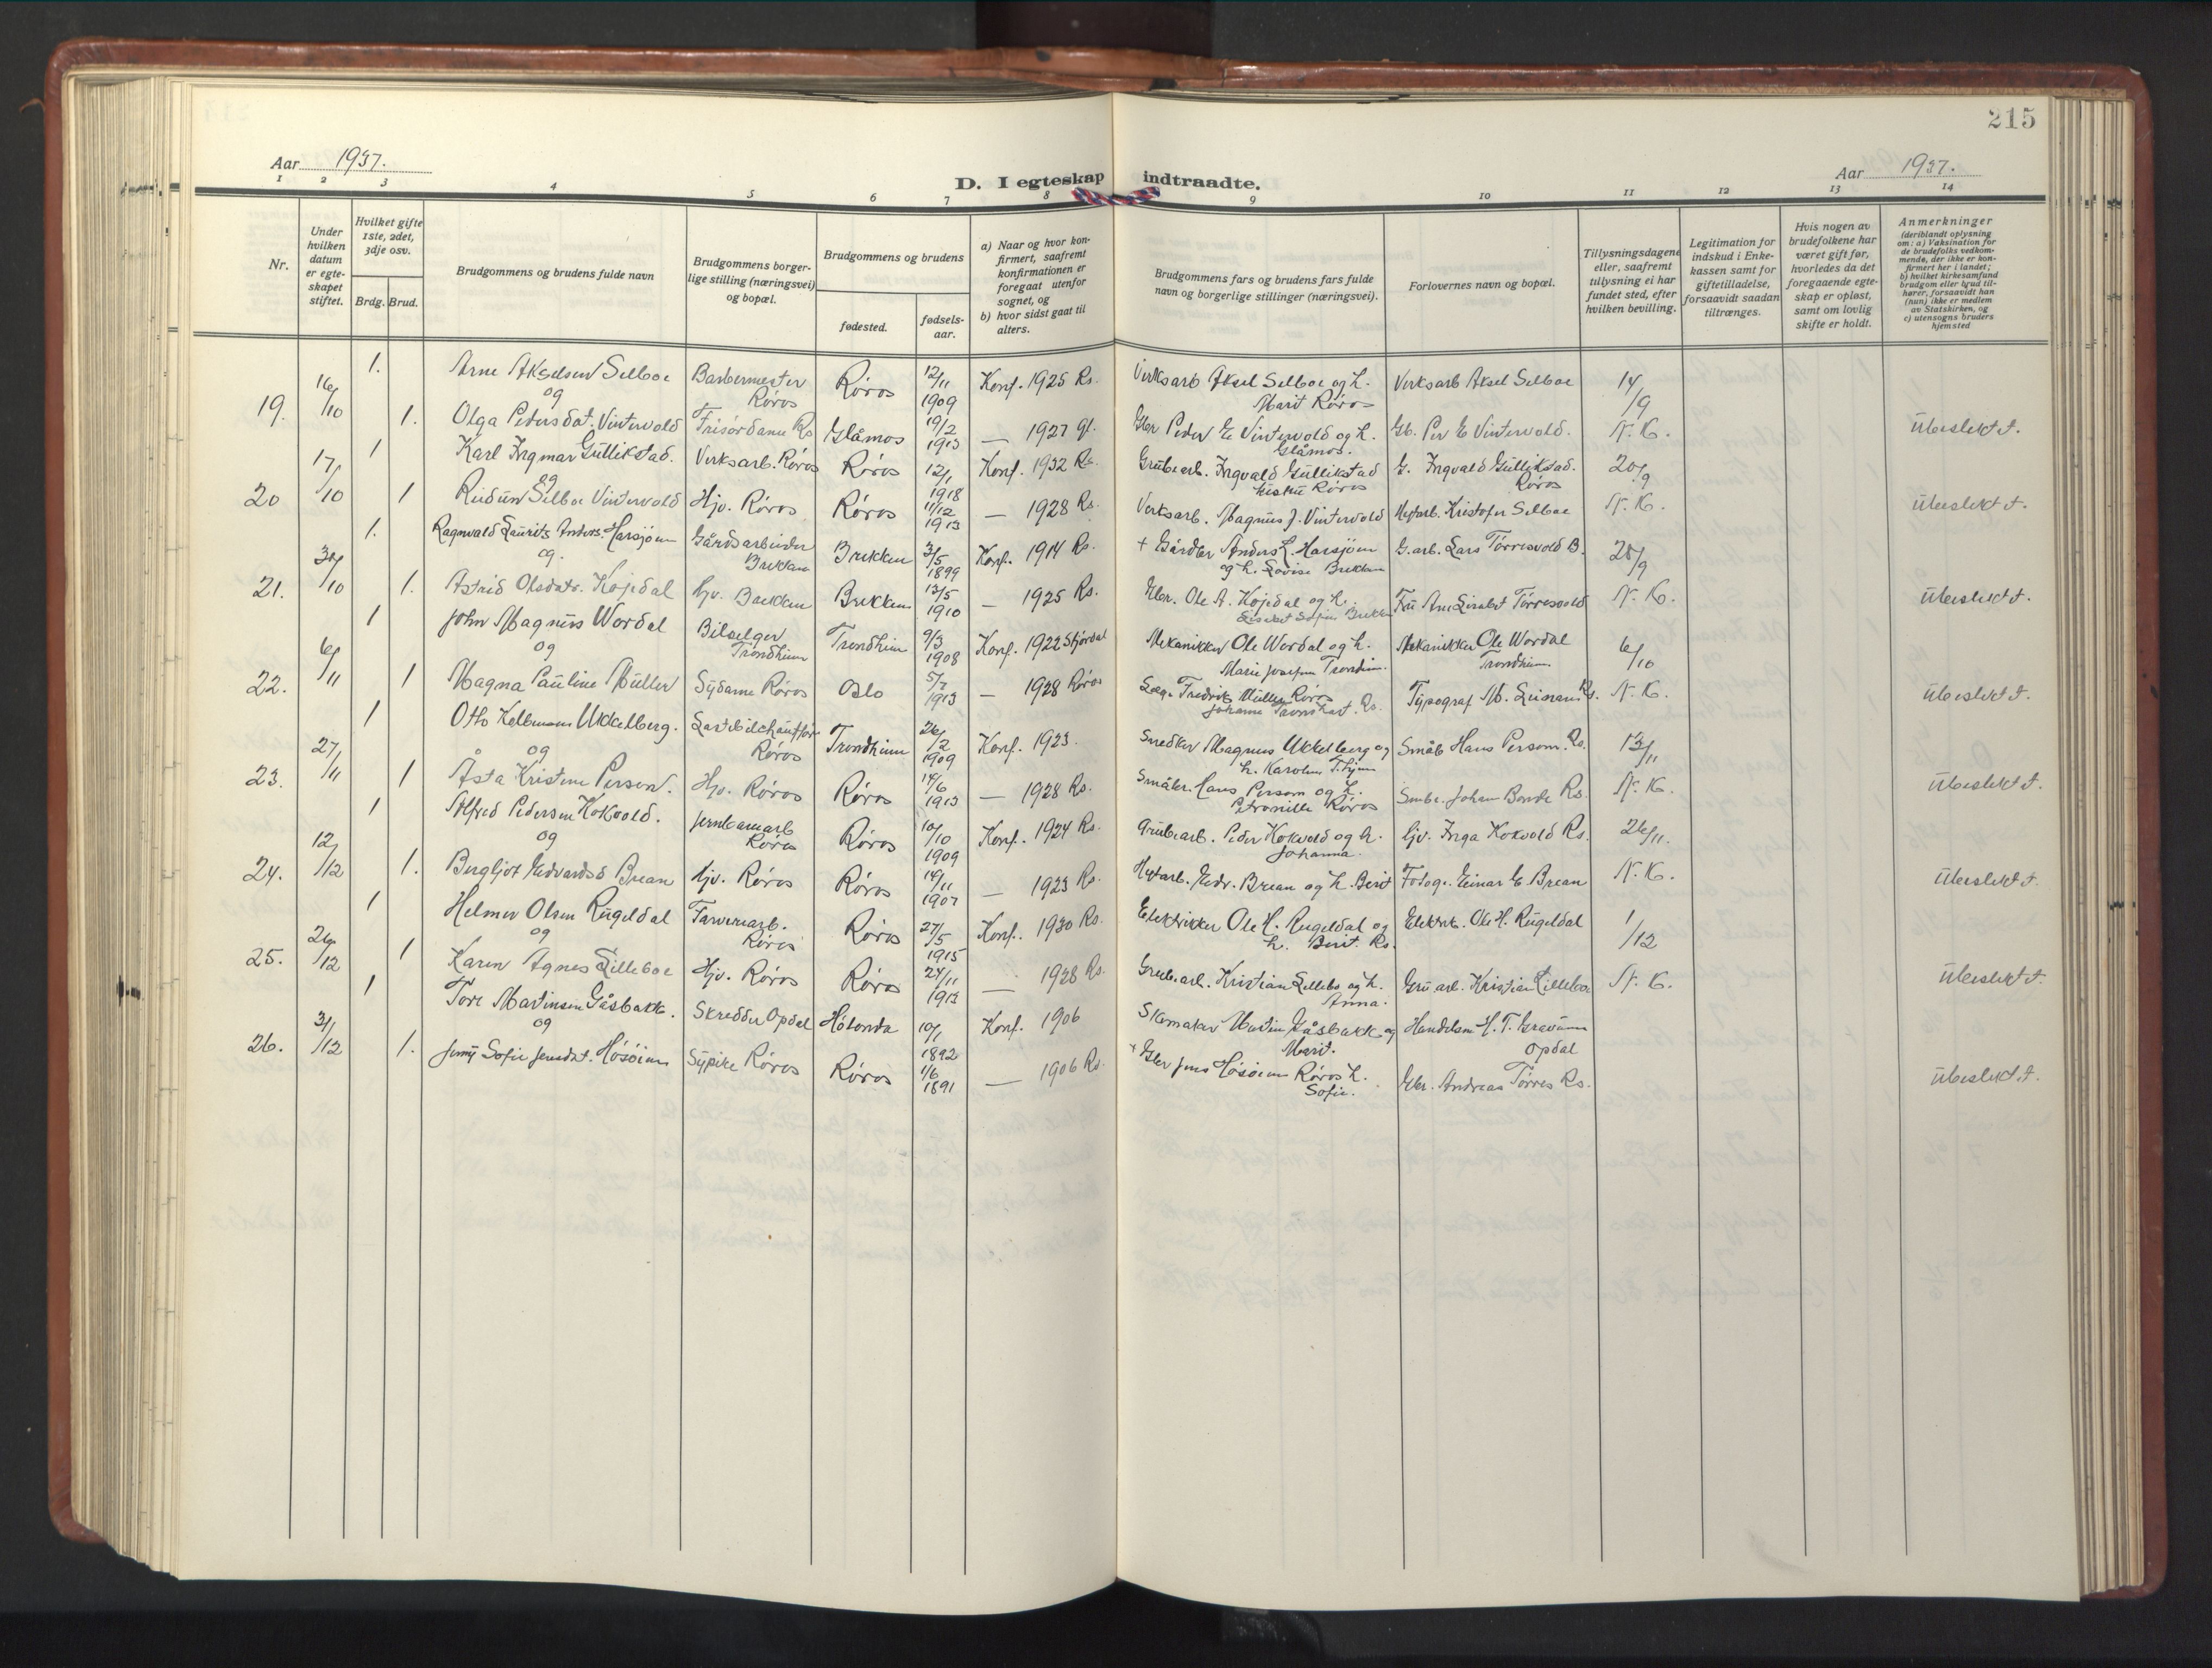 215
Aar 1937.
D. I egteskap indtraadte.
Aar 1937.
1 2 3 4 5 6 7 8 9 10 11 12 13 14
Nr.
Under hvilken datum er egte-skapet stiftet.
Hvilket gifte 1ste, 2det, 3dje osv.
Brdg. Brud.
Brudgommens og brudens fulde navn
Brudgommens borger-lige stilling (næringsvei) og bopæl.
Brudgommens og brudens
fødested.
fødsels-aar.
a) Naar og hvor kon-firmert, saafremt konfirmationen er foregaat utenfor sognet, og
b) hvor sidst gaat til alters.
Brudgommens fars og brudens fars fulde navn og borgerlige stillinger (næringsvei).
Forlovernes navn og bopæl.
Tillysningsdagene eller, saafremt tillysning ei har fundet sted, efter hvilken bevilling.
Legitimation for indskud i Enke-kassen samt for giftetilladelse, forsaavidt saadan tiltrænges.
Hvis nogen av brudefolkene har været gift før, hvorledes da det foregaaende egte-skap er opløst, samt om lovlig skifte er holdt.
Anmerkninger (deriblandt oplysning om: a) Vaksination for de brudefolks vedkom-mende, der ikke er kon-firmert her i landet; b) hvilket kirkesamfund brudgom eller brud til-hører, forsaavidt han (hun) ikke er medlem av Statskirken, og c) utensogns bruders hjemsted
19. 16/10 1. Arne Akselsen Selboe Barbermester Røros Røros 12/11 1909 Konf. 1925 Rs. Verksarb Aksel Selboe og h. Marit Røros Verksarb Aksel Selboe 14/9
og
1. Olga Pedersdat. Vintervold Frisørdame Rs Glåmos 19/2 1913 — 1927 Gl. Gbr Peder E Vintervold og h. Glåmos. Gb. Per E Vintervold. N. K. Ubeslektet.
20 17/10 1 Karl Ingmar Gullikstad. Verksarb. Røros Røros 12/1 1918 Konf. 1932 Rs. Grubearb. Ingvald Gullikstad Røros G. Ingvald Gullikstad. Røros 20/9
og
1 Reidun Selboe Vintervold Hjv. Røros Røros 11/12 1913 — 1928 Rs. Verksarb. Magnus J. Vintervold Hytarb. Kristofer Selboe N. K. Ubeslektet.
21. 30/10 1. Ragnvald Laurits Anders. Harsjøen Gårdsarbeider Brekken Brekken 3/5 1899 Konf. 1914 Rs. + Gårdbr Anders L. Harsjøen og h. Lovise Brekken G.arb. Lars Tørresvold B. 25/9
og.
1. Astrid Olsdatr. Kojedal hjv. Brekken Brekken 13/5 1910 — 1925 Rs. Gbr. Ole A. Kojedal og h. Lisabet Sofie Brekken Fru Ane Lisabet Tørresvold N. K. Ubeslektet.
22. 6/11 1 John Magnus Wordal Bilselger Trondheim Trondheim 9/3 1908 Konf. 1922 Stjørdal Mekanikker Ole Wordal og h. Marie Josefine Trondheim. Mekanikker Ole Wordal Trondheim 6/10
og
1 Magna Pauline Müller Sydame Røros Oslo 5/7 1913 — 1928 Røros Fredrik Müller Røros Johanne Rs. Typograf M. Rs. N. K. Ubeslektet.
23. 27/11 1 Otto Ukkelberg. Lastebilchauffør Røros Trondheim 26/2 1909 Konf. 1923. Snedker Magnus Ukkelberg og h. Karoline Småb Hans Person. Rs. 13/11
og
1 Åsta Kristine Person. Hjv. Røros Røros 14/6 1913 — 1928 Rs. Småbr. Hans Person og h. Petronille Røros Småbr. Johan Bonde Rs. N. K. Ubeslektet.
24. 12/12 1 Alfred Pedersen Kokvold. Jernbanearb Røros Røros 10/10 1909 Konf. 1924 Rs. Grubearb. Peder Kokvold og h. Johanna. hjv. Inga Kokvold Rs. 26/11.
og
1. Bergljot Edvardsd Brean hjv. Røros Røros 14/11 1907 — 1923 Rs. Hytarb. Edv. Brean og h. Berit Fotogr. Einar E Brean N. K. Ubeslektet.
25. 26/12 1 Helmer Olsen Rugeldal Farveriarb. Røros Røros 27/5 1915 Konf. 1930 Rs. Elektriker Ole H. Rugeldal og h. Berit. Rs. Elektrk. Ole H. Rugeldal 1/12
og
1 Karen Agnes Lilleboe Hjv. Røros Røros 24/11 1913 — 1928 Rs. Grubearb. Kristian Lillebo og h. Anna. Gru.arb. Kristian Lilleboe N. K. Ubeslektet.
26. 31/12 1 Tore Martinsen Gåsbakk. Skredder Opdal Hølonda 10/1 1892 Konf. 1906 Skomaker Martin Gåsbakk og Marit. Handelsm H. T. Gravaune Opdal
og
1. Jenny Sofie Jensdat. Høsøien Sypike Røros Røros 1/6 1891 — 1906 Rs. + Gbr Jens Høsøien Røros h. Sofie. Gbr. Andreas Tørres Rs. Ubeslekt.t.